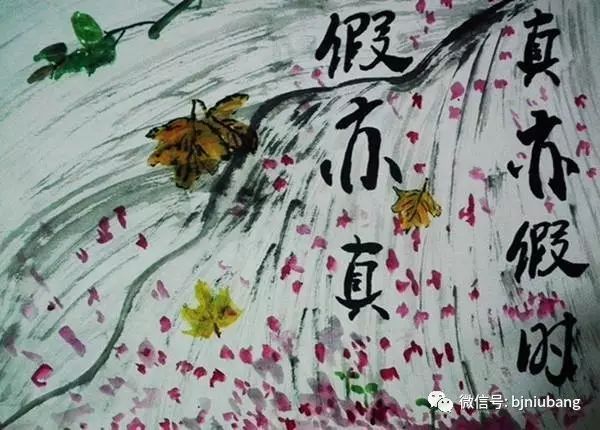 真亦假时
假亦真
微信号: bjniubang